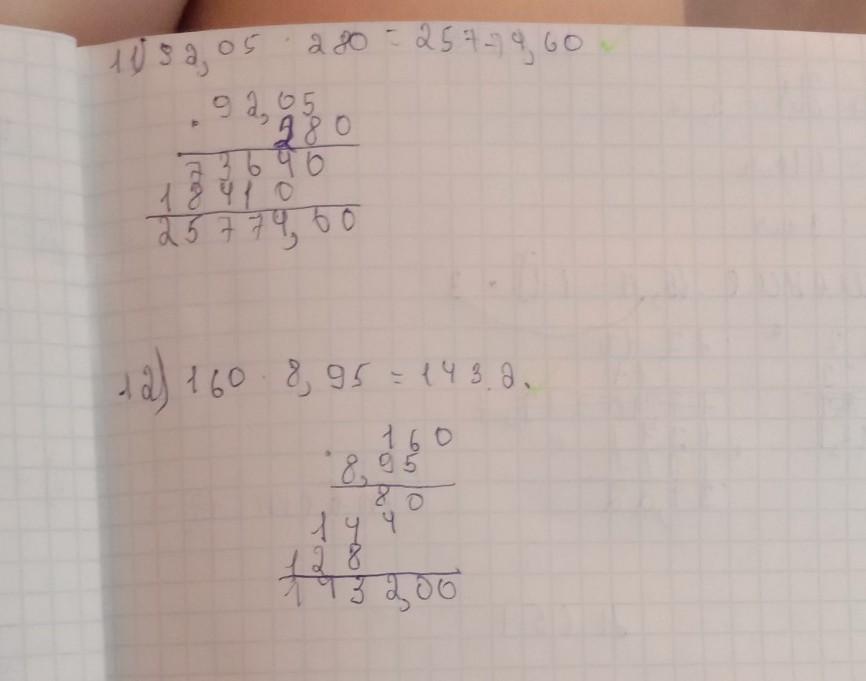 11) 92,05 · 280 = 25774,60
92,05
280
73640
18410
25774,60
12) 160 · 8,95 = 1432.
160
8,95
80
144
128
1432,00